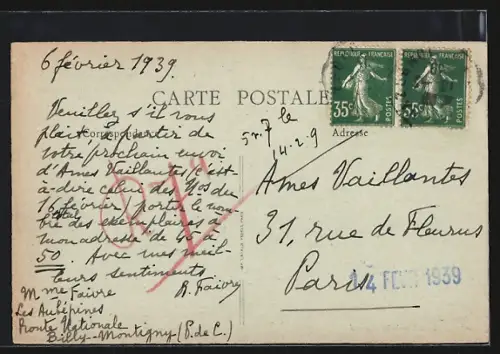 6 février 1939.
REPUBLIQUE FRANCAISE
35c
POSTES
REPUBLIQUE FRANCAISE
35c
POSTES
CARTE POSTALE
Correspondance
Adresse
Veuillez s'il vous
plait, à partir de
votre prochain envoi
d'Ames Vaillantes (c'est-
à-dire celui des Nos du
16 février) porter le nom-
bre des exemplaires à
mon adresse de 45 à
50. Avec mes meil-
leurs sentiments
R. Faivre
Mme Faivre
Les Aubépines
Route Nationale
Billy-Montigny (P. de C.)
7 le
14.2.9
Ames Vaillantes
31, rue de Fleurus
Paris
14 FEVR 1939